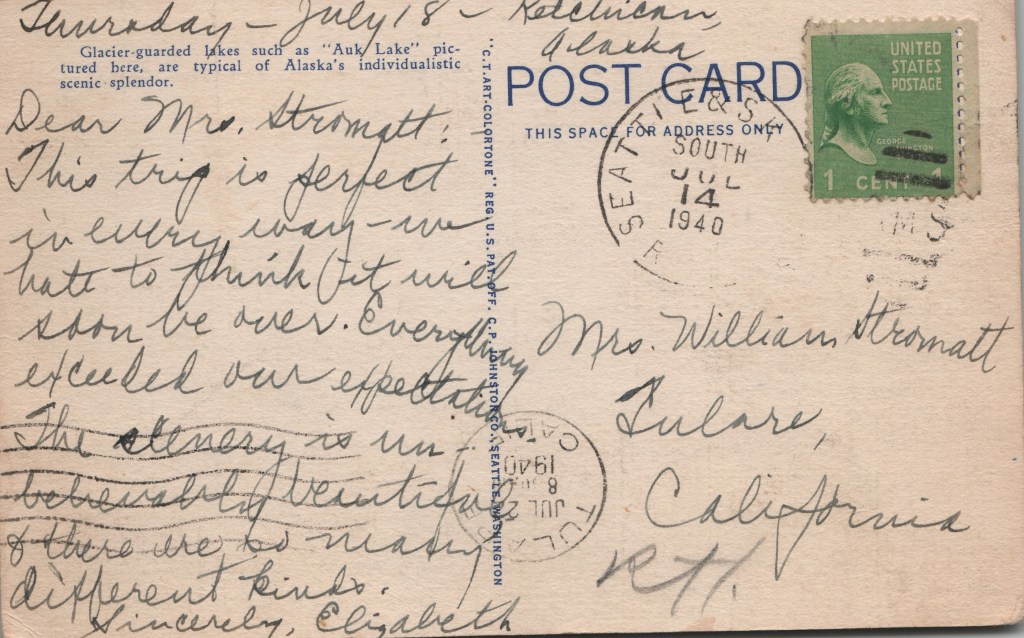 Thursday - July 18 - Ketchican,
Alaska
Glacier-guarded lakes such as "Auk Lake" pic-
tured here, are typical of Alaska's individualistic
scenic splendor.
Dear Mrs. Stromatt: -
This trip is perfect
in every way - we
hate to think it will
soon be over. Everything
exceeded our expectations.
The scenery is un-
believably beautiful
& there are so many
different kinds.
Sincerely, Elizabeth
"C.T. ART-COLORTONE" REG. U.S. PAT. OFF. C. P. JOHNSTON CO., SEATTLE, WASHINGTON
POST CARD
THIS SPACE FOR ADDRESS ONLY
SEATTLE & S
SOUTH
JUL
14
1940
R
UNITED
STATES
POSTAGE
GEORGE
WASHINGTON
1 CENT 1
Mrs. William Stromatt
Tulare,
California
R H.
TULARE
JUL 2
8
1940
CALIF